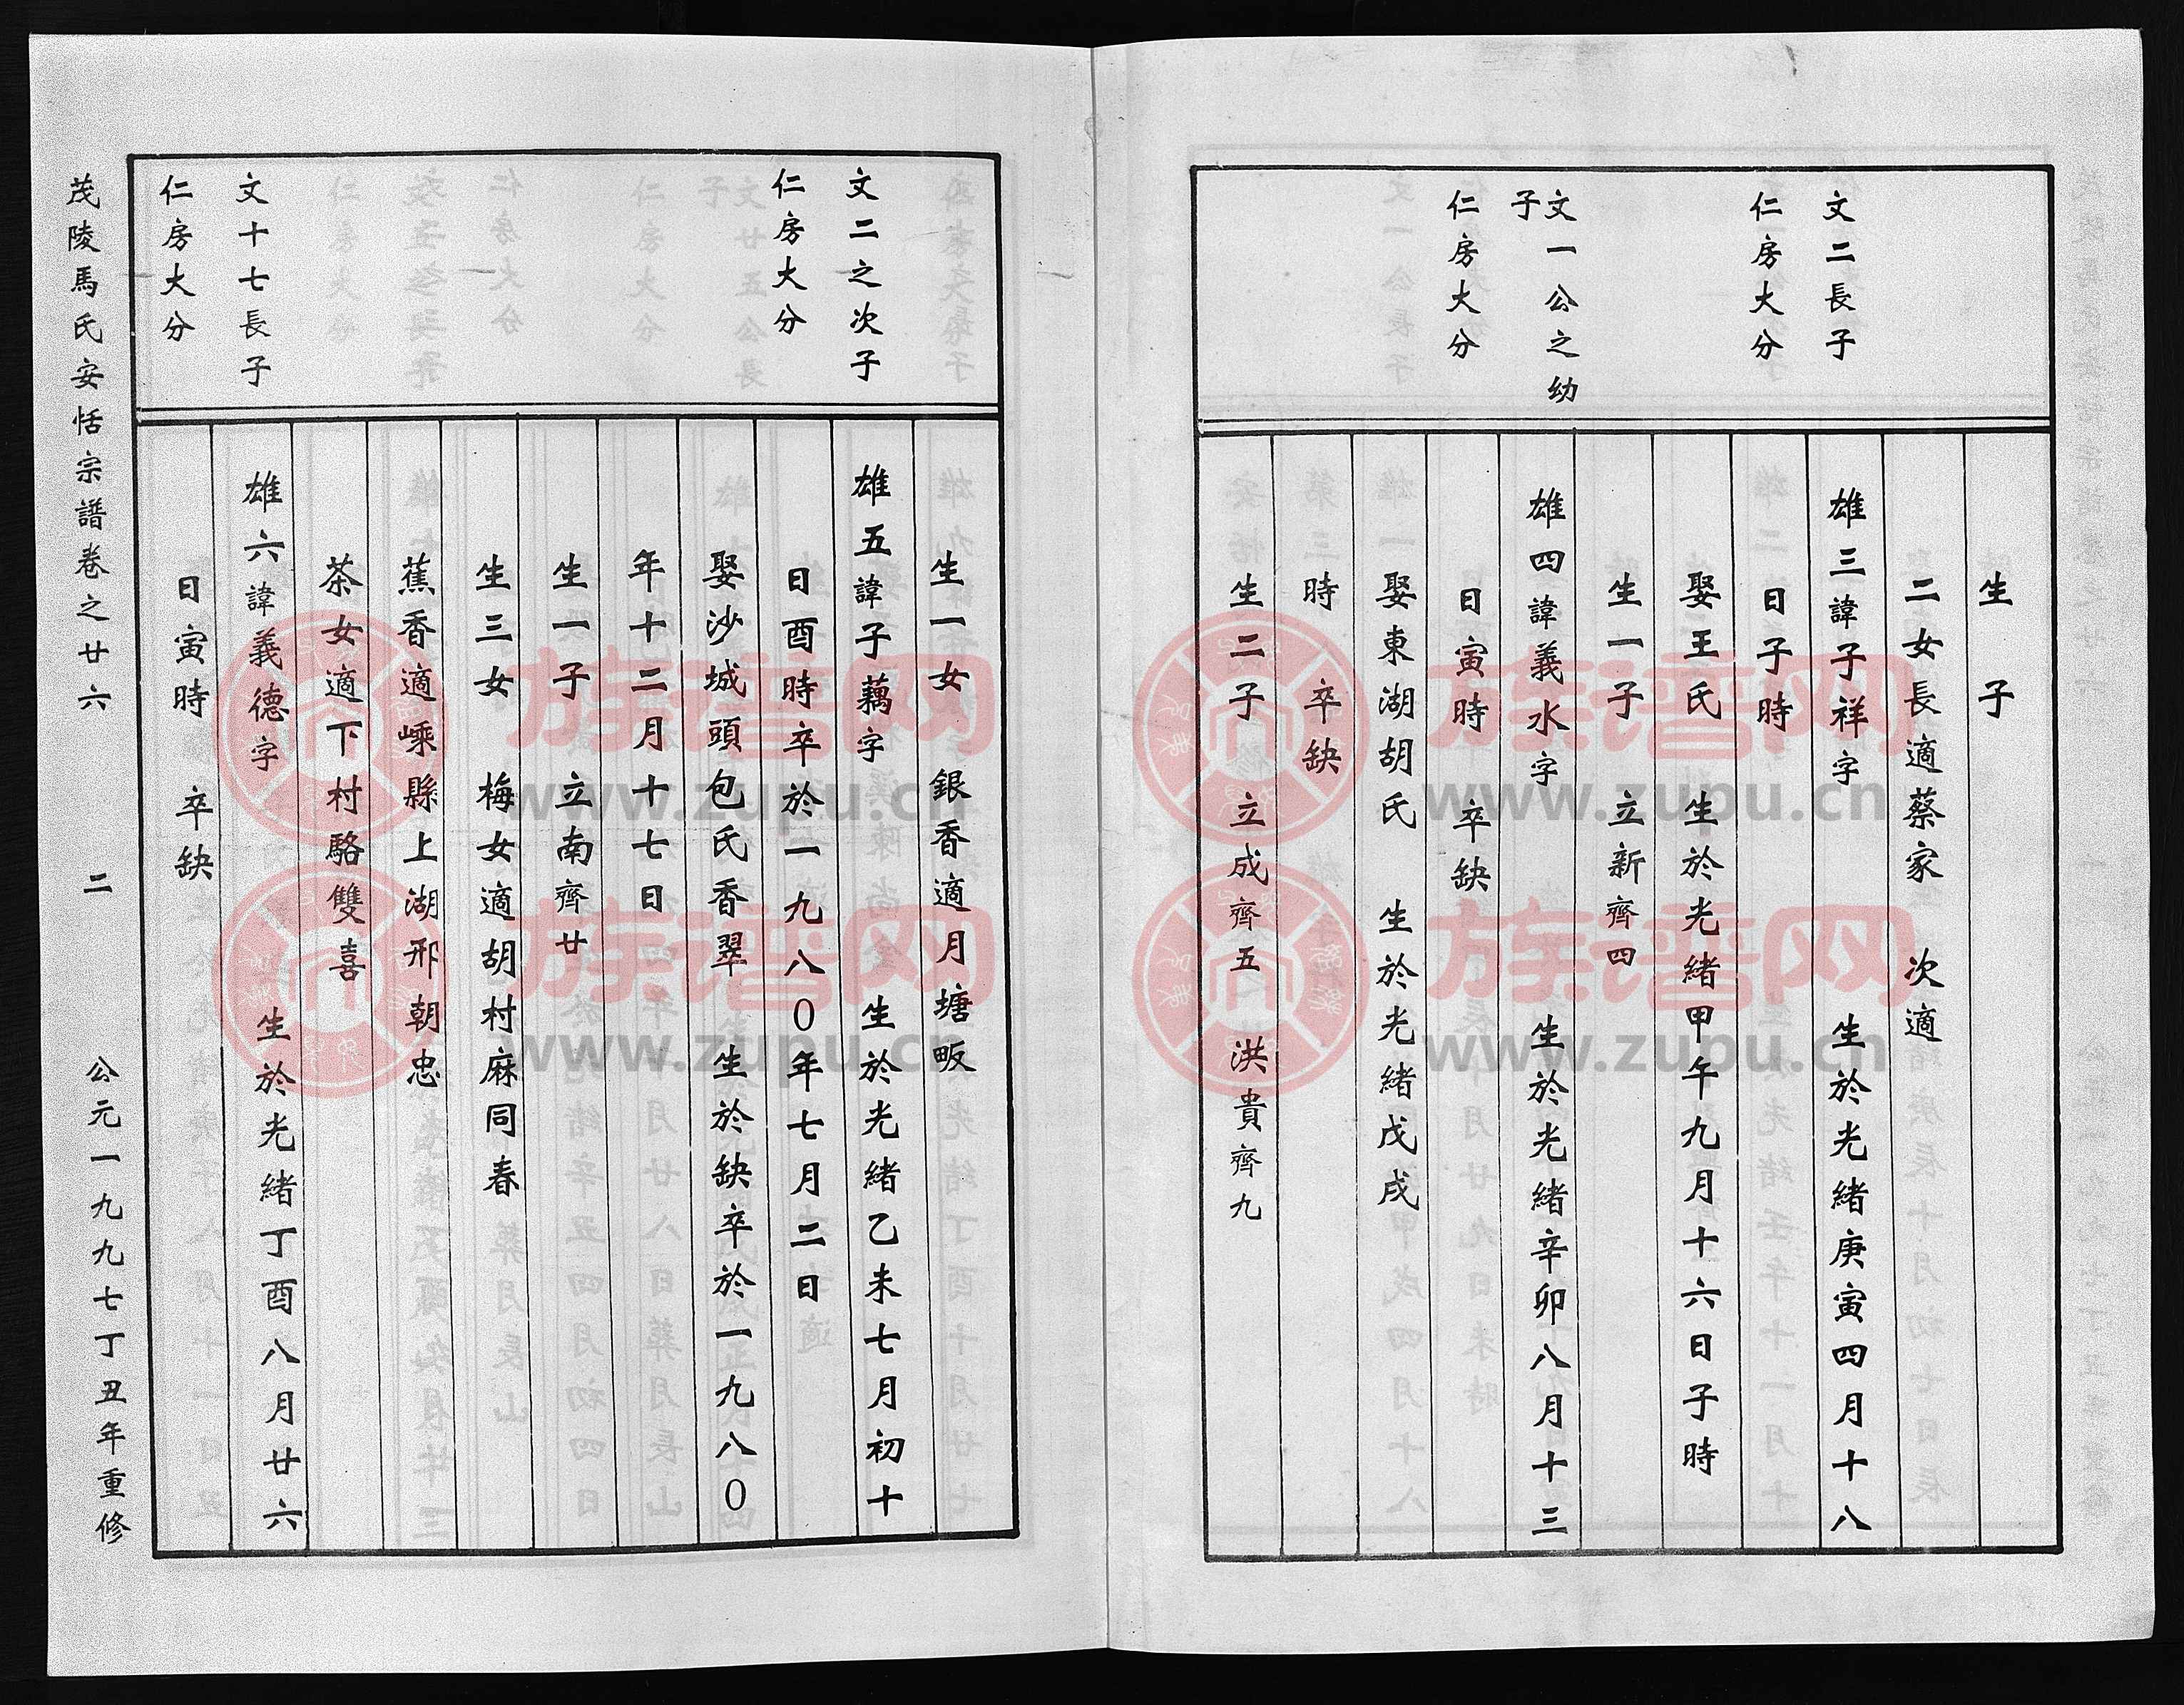 文二長子
仁房大分
文一公之幼
子
仁房大分
生子
二女長適蔡家 次適
雄三諱子祥字 生於光緒庚寅四月十八
日子時
娶王氏 生於光緒甲午九月十六日子時
生一子 立新齊四
雄四諱義水字 生於光緒辛卯八月十三
日寅時 卒缺
娶東湖胡氏 生於光緒戊戌
時 卒缺
生二子 立成齊五 洪貴齊九
文二之次子
仁房大分
文十七長子
仁房大分
生一女 銀香適月塘畈
雄五諱子藕字 生於光緒乙未七月初十
日酉時卒於一九八〇年七月二日
娶沙城頭包氏香翠 生於缺卒於一九八〇
年十二月十七日
生一子 立南齊廿
生三女 梅女適胡村麻同春
蕉香適嵊縣上湖邢朝忠
茶女適下村駱雙喜
雄六諱義德字 生於光緒丁酉八月廿六
日寅時 卒缺
茂陵馬氏安恬宗譜卷之廿六 二 公元一九九七丁丑年重修
族谱网
www.zupu.cn
族谱网
www.zupu.cn
族谱网
www.zupu.cn
族谱网
www.zupu.cn